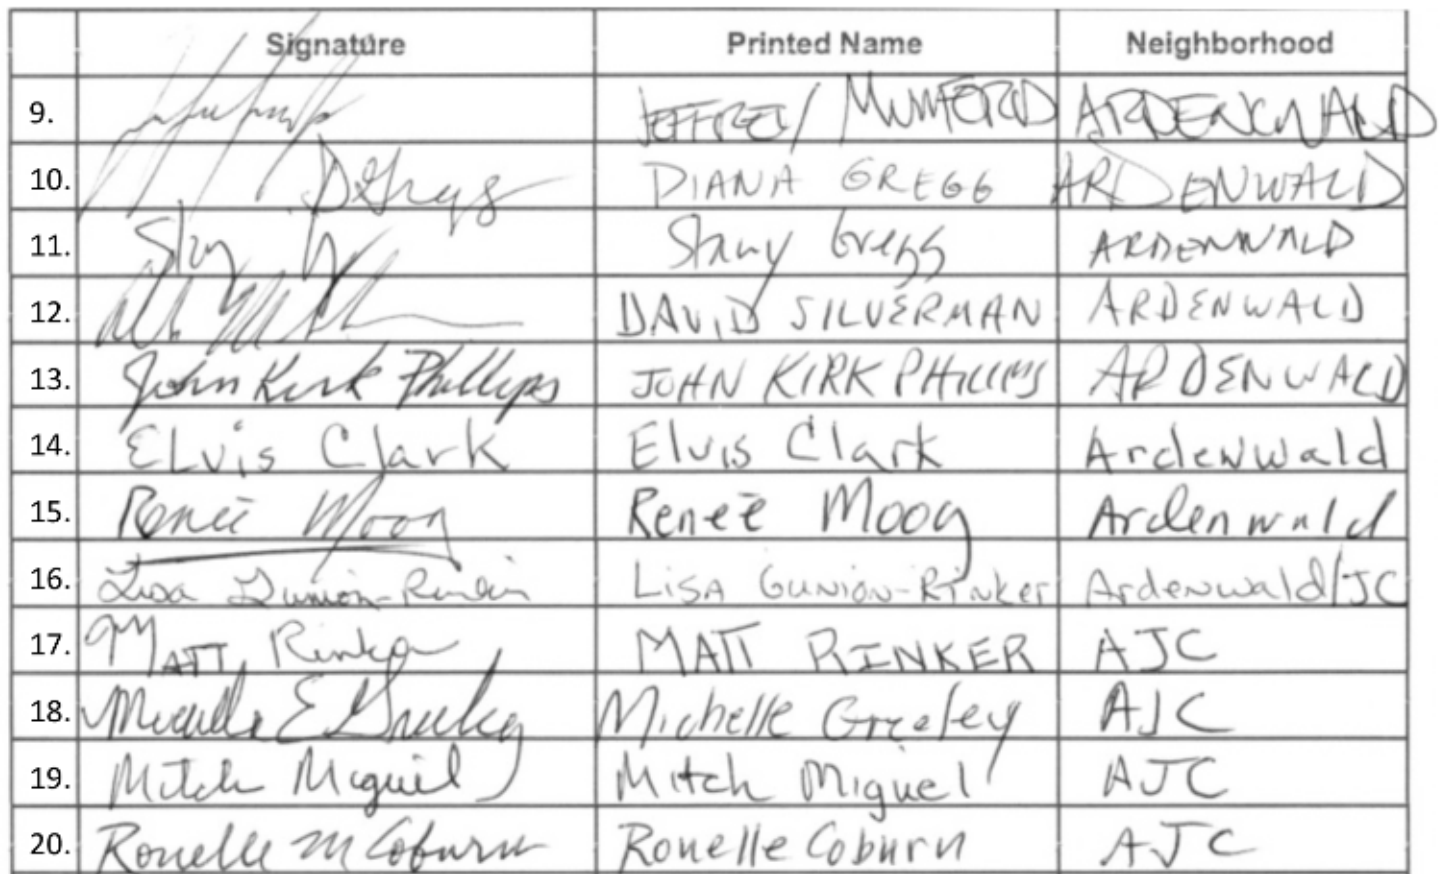 Signature Printed Name Neighborhood
9. JEFFREY MUMFORD ARDENWALD
10. D Gregg DIANA GREGG ARDENWALD
11. Gregg ARDENWALD
12. DAVID SILVERMAN ARDENWALD
13. John Kirk Phillips JOHN KIRK PHILLIPS ARDENWALD
14. ELvis Clark Elvis Clark Ardenwald
15. Renee Moog Renee Moog Ardenwald
16. Lisa Gunion-Rinker LiSA Gunion-Rinker Ardenwald/JC
17. MATT Rinker MATT RINKER AJC
18. Michelle E Greeley Michelle Greeley AJC
19. Mitch Miguel Mitch Miguel AJC
20. Ronelle M Coburn Ronelle Coburn AJC